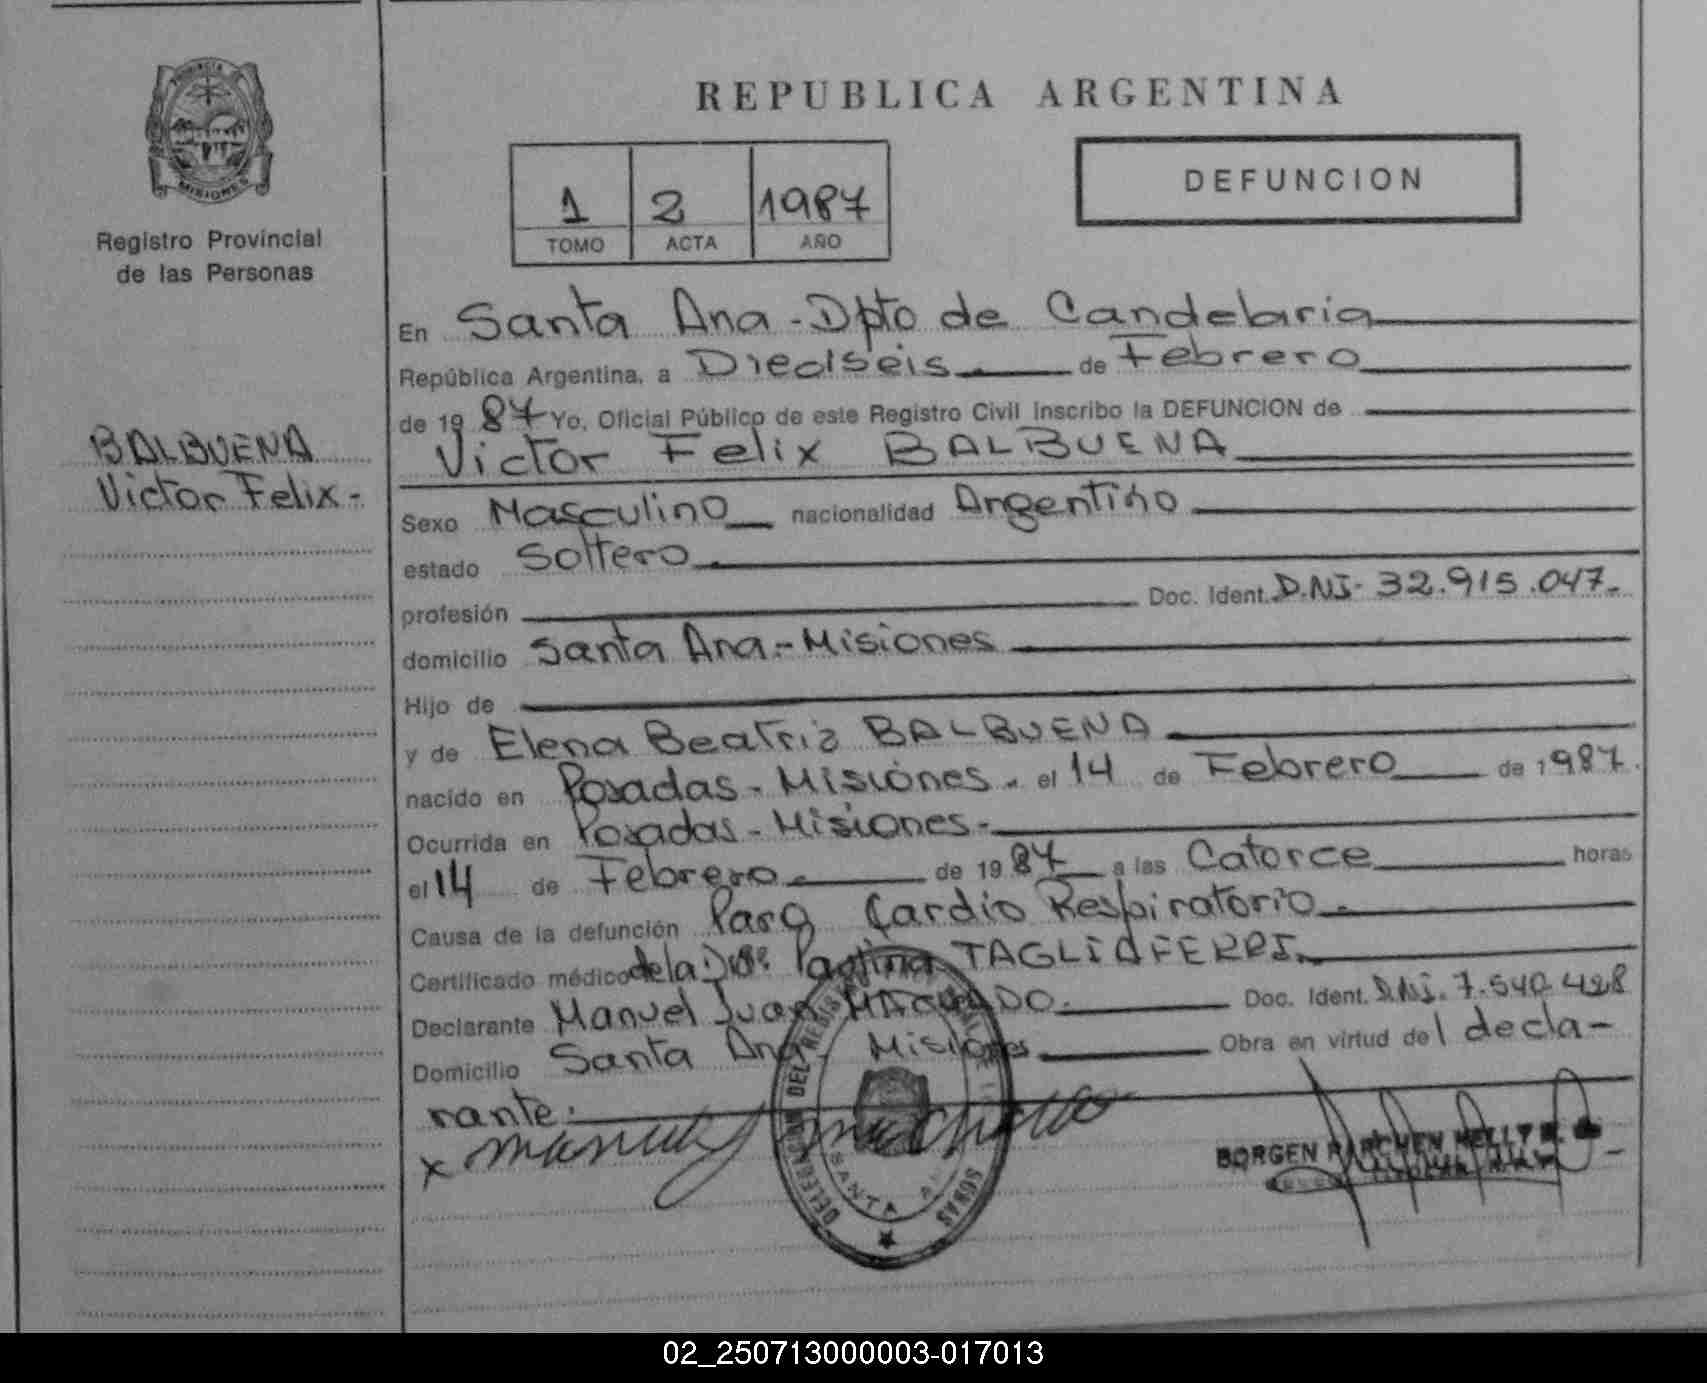 PROVINCIA
MISIONES
Registro Provincial
de las Personas
BALBUENA
Victor Felix-
REPUBLICA ARGENTINA
1 2 1987
TOMO ACTA AÑO
DEFUNCION
En Santa Ana-Dpto de Candelaria
República Argentina, a Dieciseis de Febrero
de 1987 Yo, Oficial Público de este Registro Civil inscribo la DEFUNCION de
Victor Felix BALBUENA
Sexo Masculino nacionalidad Argentino
estado Soltero
profesión Doc. Ident. D.N.I- 32.915.047-
domicilio Santa Ana-Misiones
Hijo de
y de Elena Beatriz BALBUENA
nacido en Posadas-Misiones. el 14 de Febrero de 1987.
Ocurrida en Posadas-Misiones-
el 14 de Febrero de 1987 a las Catorce horas
Causa de la defunción Paro Cardio Respiratorio.
Certificado médico de la Dra. TAGLIAFERRI.
Declarante Manuel Juan MACHADO. Doc. Ident. D.N.I. 7.540.428
Domicilio Santa Ana Misiones Obra en virtud del decla-
rante.
x Manuel J Machado
DELEGACION DEL REGISTRO
SANTA ANA
BORGEN NELLY
02_250713000003-017013